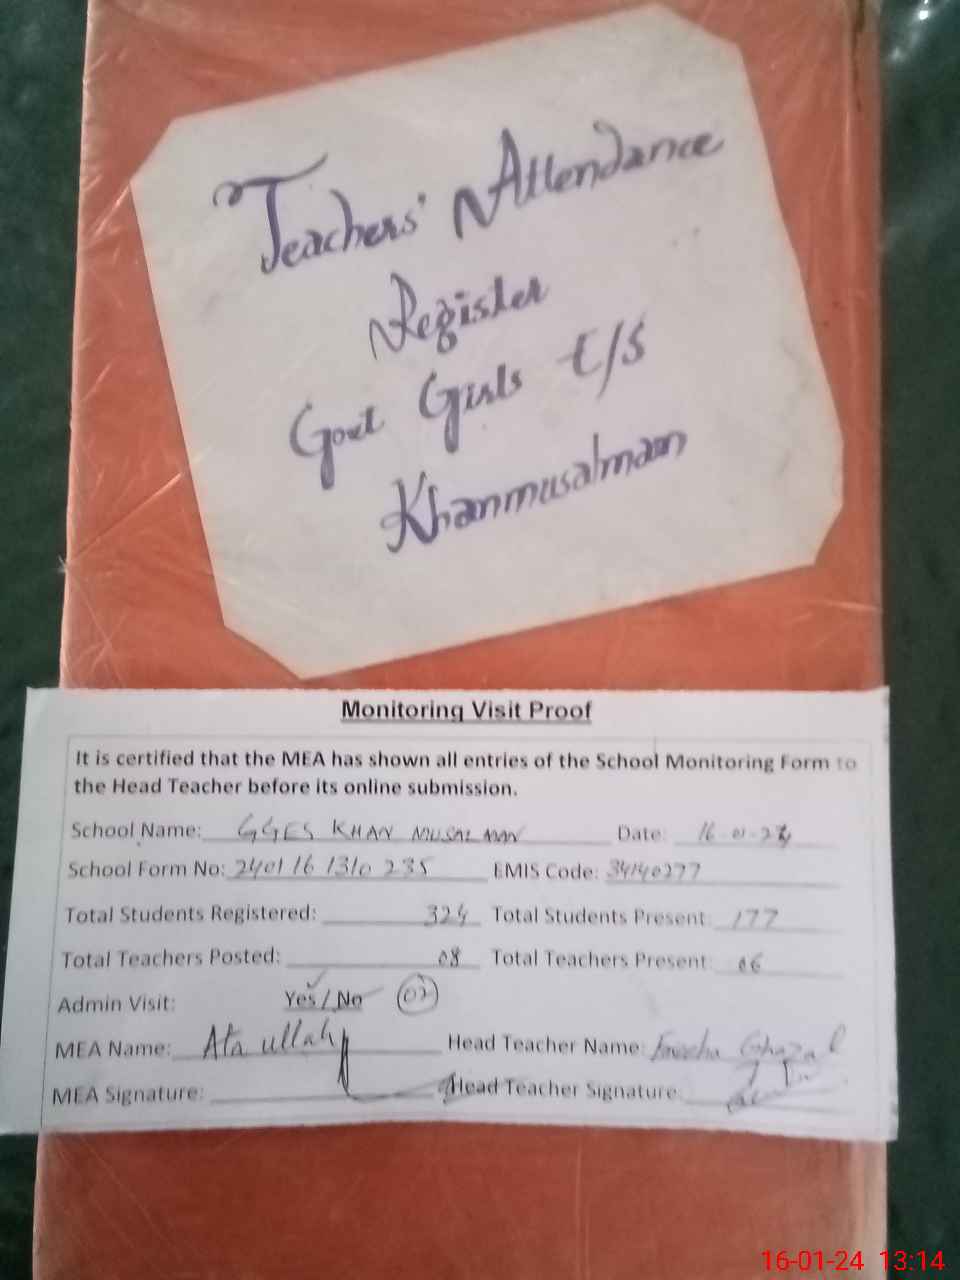 Teachers' Attendance
Register
Govt Girls E/S
Khanmusalmaan
Monitoring Visit Proof
It is certified that the MEA has shown all entries of the School Monitoring Form to
the Head Teacher before its online submission.
School Name: GGES KHAN MUSALMAN Date: 16-01-24
School Form No: 240116 1310 235 EMIS Code: 34140277
Total Students Registered: 324 Total Students Present: 177
Total Teachers Posted: 08 Total Teachers Present: 06
Admin Visit: Yes / No 02
MEA Name: Ata ullah Head Teacher Name: Ghazal
MEA Signature: Head Teacher Signature:
16-01-24 13:14